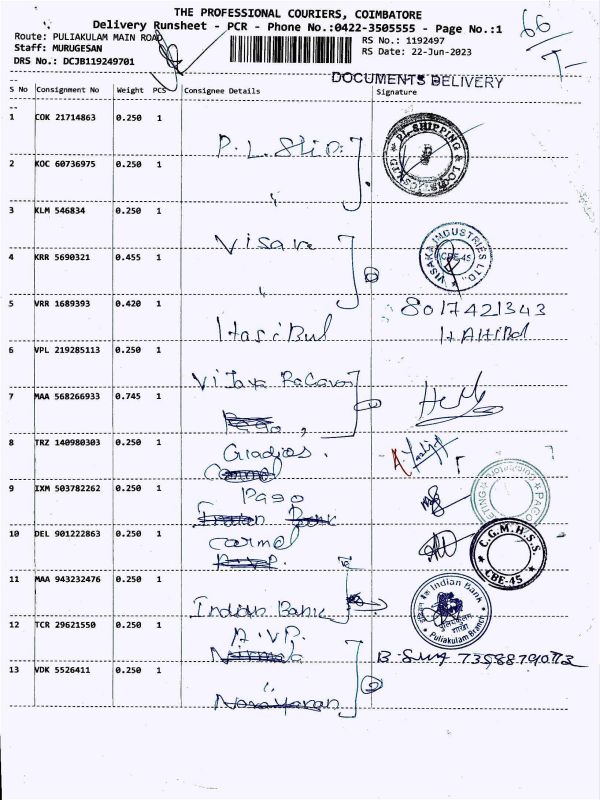 THE PROFESSIONAL COURIERS, COIMBATORE
Delivery Runsheet - PCR - Phone No.:0422-3505555 - Page No.:1
66
Route: PULIAKULAM MAIN ROAD
Staff: MURUGESAN
DRS No.: DCJB119249701
RS No.: 1192497
RS Date: 22-Jun-2023
DOCUMENTS DELIVERY
S No Consignment No Weight PCS Consignee Details Signature
1 COK 21714863 0.250 1
P.L. Ship.
PL SHIPPING & LOGISTICS
2 KOC 60736975 0.250 1
"
3 KLM 546834 0.250 1
Visaka
VISAKA INDUSTRIES LTD.,
CBE-45
4 KRR 5690321 0.455 1
"
5 VRR 1689393 0.420 1
Hasibul
8017421343
6 VPL 219285113 0.250 1
Vijaya
7 MAA 568266933 0.745 1
8 TRZ 140980303 0.250 1
Carmel
9 IXM 503782262 0.250 1
Pago
Indian Bank
PAGO
10 DEL 901222863 0.250 1
Carmel
A.V.P.
C.G.M.H.S.S.
CBE-45
11 MAA 943232476 0.250 1
Indian Bank
Indian Bank
Puliakulam Branch
12 TCR 29621550 0.250 1
A.V.P.
Nirmala
13 VDK 5526411 0.250 1
"
Narayanan